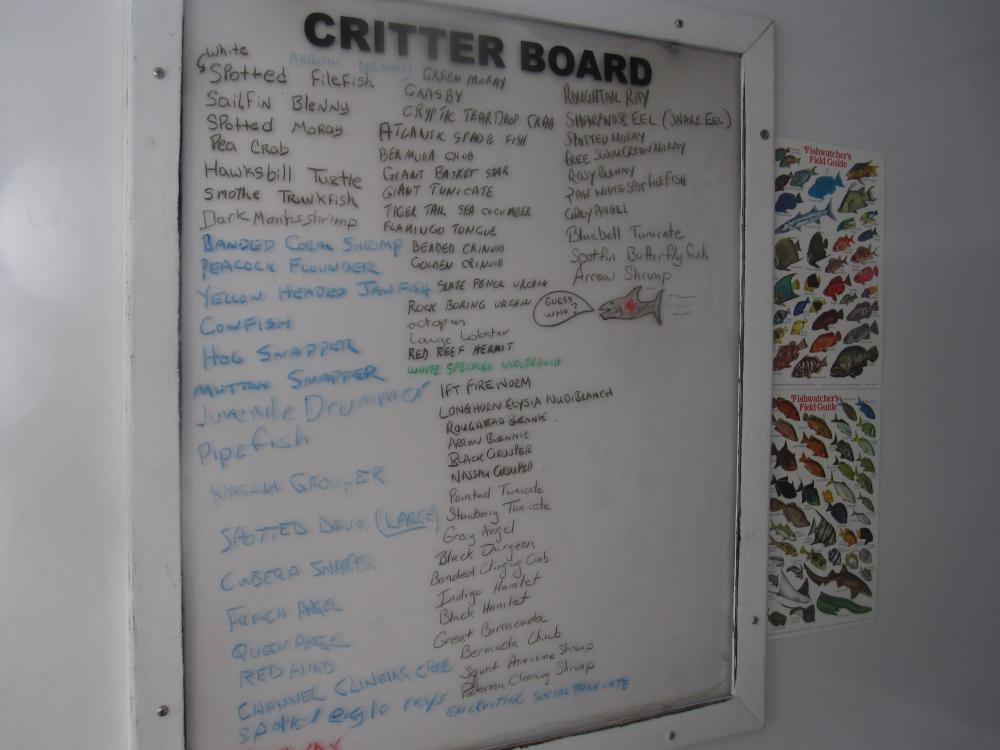 CRITTER BOARD
White
Spotted Filefish
Sailfin Blenny
Spotted Moray
Pea Crab
Hawksbill Turtle
Smothe Trunkfish
Dark Mantisshrimp
BANDED CORAL SHRIMP
PEACOCK FLOUNDER
YELLOW HEADED JAWFISH
COWFISH
HOG SNAPPER
MUTTON SNAPPER
Juvenile Drummer
Pipefish
NASSAU GROUPER
SPOTTED DRUM (LARGE)
CUBERA SNAPPER
FRENCH ANGEL
QUEEN ANGEL
RED HIND
CHANNEL CLINGING CRAB
spotted eagle rays
ARROW
GREEN MORAY
GRASBY
CRYPTIC TEARDROP CRAB
ATLANTIC SPADE FISH
BERMUDA CHUB
GIANT BASKET STAR
GIANT TUNICATE
TIGER TAIL SEA CUCUMBER
FLAMINGO TONGUE
BEADED CRINOID
GOLDEN CRINOID
SLATE PENCIL URCHIN
ROCK BORING URCHIN
octopus
Large Lobster
RED REEF HERMIT
WHITE SPECKLED NUDIBRANCH
1FT FIREWORM
LONGHORN ELYSIA NUDIBRANCH
ROUGHEAD BLENNIE
ARROW BLENNIE
BLACK GROUPER
NASSAU GROUPER
Painted Tunicate
Strawberry Tunicate
Gray Angel
Black Durgeon
Banded Clinging Crab
Indigo Hamlet
Black Hamlet
Great Barracuda
Bermuda Chub
Squat Anemone Shrimp
Pederson Cleaning Shrimp
ENCRUSTING SOCIAL TUNICATE
ROUGHTAIL RAY
SHARPNOSE EEL (SNAKE EEL)
SPOTTED MORAY
FREE SWIM GREEN MORAY
ROSY BLENNY
PAIR WHITE SPOT FILEFISH
GREY ANGEL
Bluebell Tunicate
Spotfin Butterflyfish
Arrow Shrimp
GUESS
WHO?
Fishwatcher's
Field Guide
Fishwatcher's
Field Guide